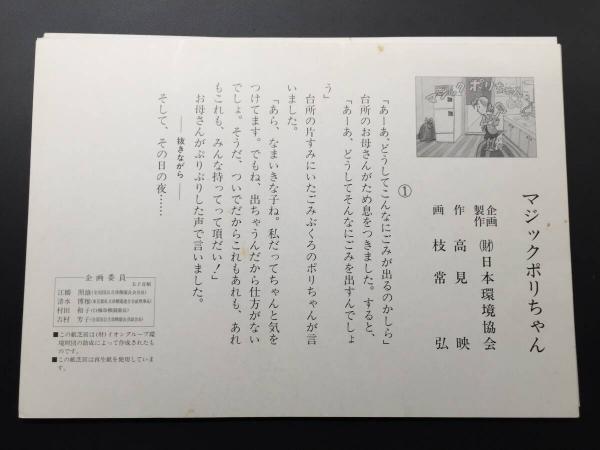 マジックポリちゃん
企画
製作 ㈶日本環境協会
作 高見 映
画 枝 常 弘
①
「あーあ、どうしてこんなにごみが出るのかしら」
台所のお母さんがため息をつきました。すると、
「あーあ、どうしてそんなにごみを出すんでしょ
う」
台所の片すみにいたごみぶくろのポリちゃんが言
いました。
「あら、なまいきな子ね。私だってちゃんと気を
つけてます。でもね、出ちゃうんだから仕方がない
でしょ。そうだ、ついでだからこれもあれも、あれ
もこれも、みんな持ってって頂だい！」
お母さんがぷりぷりした声で言いました。
──抜きながら──
そして、その日の夜……
企画委員
江橋
清水
村田 和子
吉村 芳子
■この紙芝居は(財)イオングループ環
境財団の助成によって作成されたも
のです。
■この紙芝居は再生紙を使用していま
す。